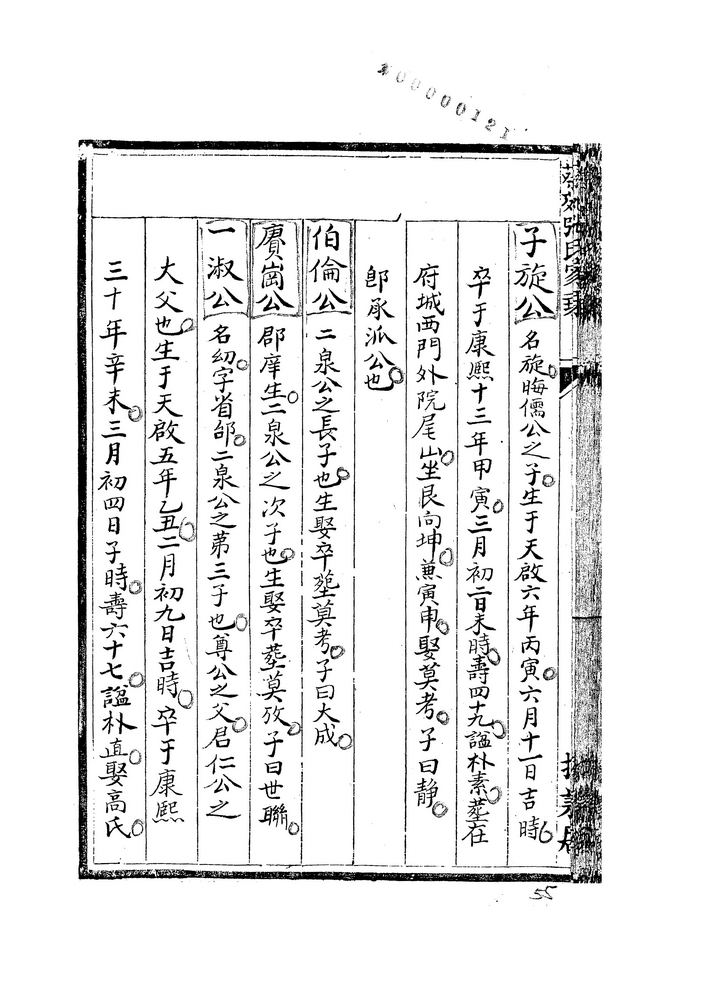 00000121
子旋公 名旋晦儒公之子生于天啟六年丙寅六月十一日吉時
卒于康熙十三年甲寅三月初二日未時壽四十九諡朴素塟在
府城西門外院尾山坐艮向坤兼寅申娶莫考子曰静
即承派公也
伯倫公 二泉公之長子也生娶卒塟莫考子曰大成
賡崗公 郡庠生二泉公之次子也生娶卒塟莫攷子曰世聯
一淑公 名㓜字省邰二泉公之苐三子也尊公之父君仁公之
大父也生于天啟五年乙丑二月初九日吉時卒于康熙
三十年辛未三月初四日子時壽六十七諡朴直娶高氏
55